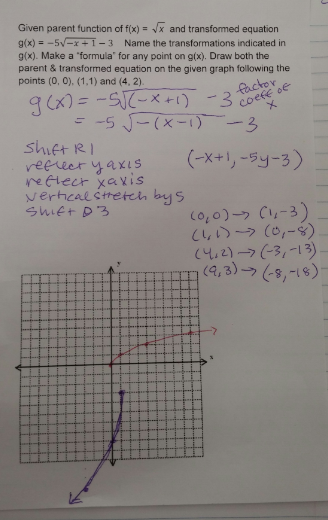 Given parent function of f(x) = √x and transformed equation
g(x) = −5√−x + 1 − 3 Name the transformations indicated in
g(x). Make a "formula" for any point on g(x). Draw both the
parent & transformed equation on the given graph following the
points (0, 0), (1,1) and (4, 2).
g(x) = -5√(-x+1) - 3 factor coeff of x
= -5 √-(x-1) - 3
Shift R1
reflect y axis (-x+1, -5y-3)
reflect x axis
vertical stretch by 5
Shift D3
(0,0) → (1,-3)
(1,1) → (0,-8)
(4,2) → (-3,-13)
(9,3) → (-8,-18)
y
x